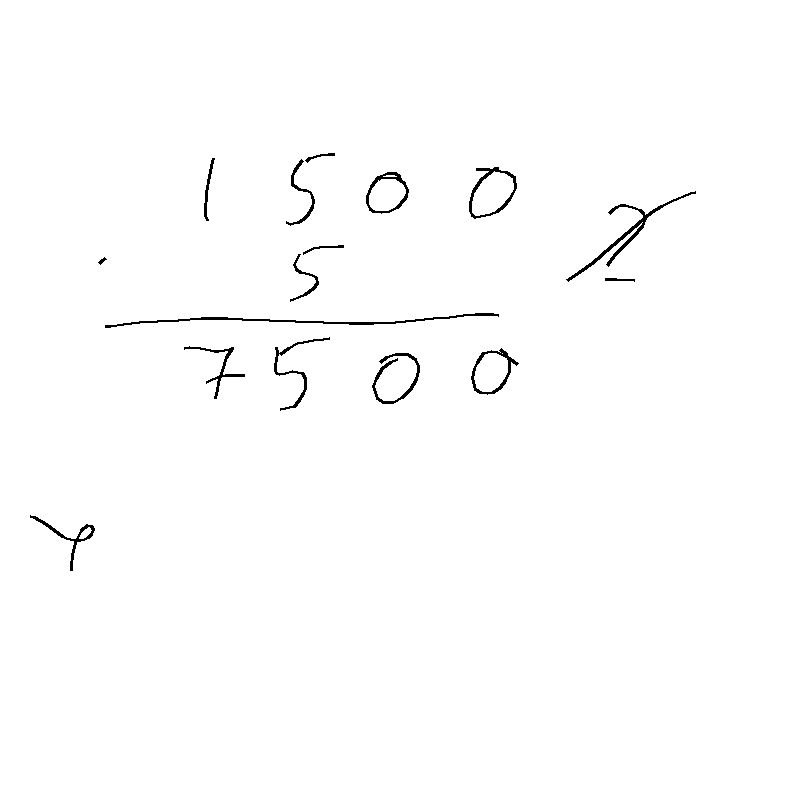 1500
· 5 2
7500